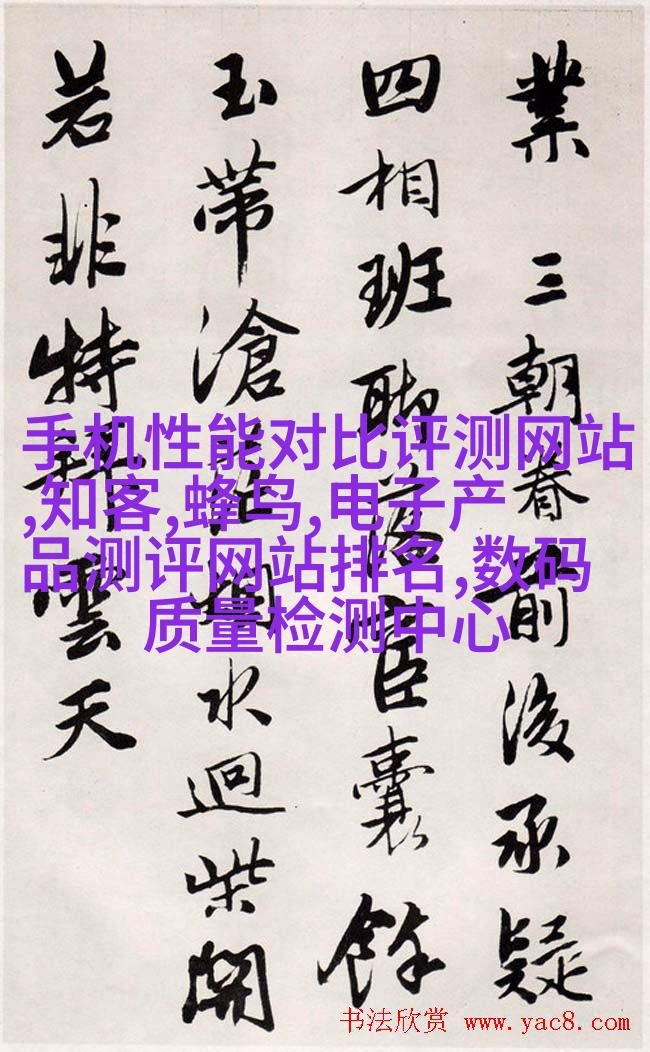 業 三朝前後承疑
四相班聯臣囊餘
玉帶滄水迴柴開
若非特雲天
手机性能对比评测网站
,知客,蜂鸟,电子产
品测评网站排名,数码
质量检测中心
书法欣赏 www.yac8.com